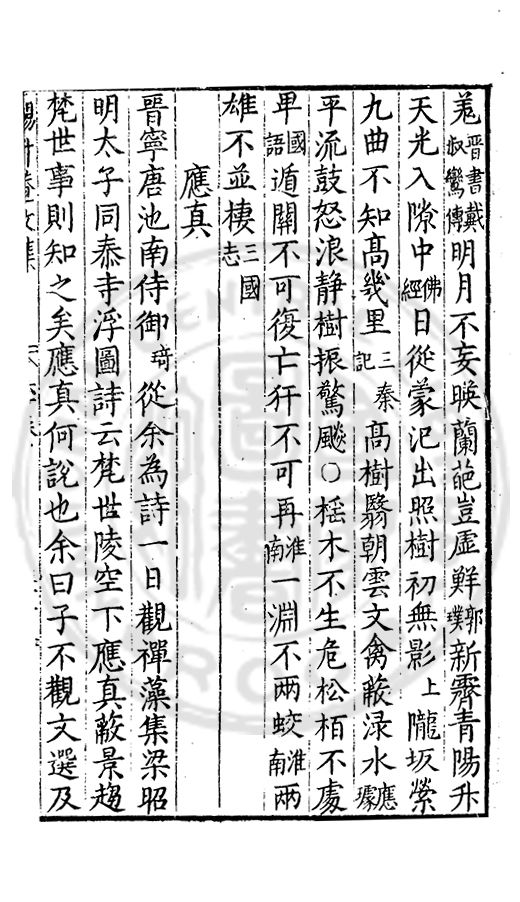 羗晉書戴叔鸞傳明月不妄暎蘭葩豈虛鮮郭璞新霽青陽升
天光入隙中佛經日從蒙汜出照樹初無影上隴坂縈
九曲不知髙幾里三秦記髙樹翳朝雲文禽蔽渌水應璩
平流鼓怒浪靜樹振驚飈○榣木不生危松柏不處
卑國語遁關不可復亡犴不可再淮南一淵不兩蛟淮南兩
雄不並棲三國志
應真
晉寧唐池南侍御琦從余為詩一日觀禪藻集梁昭
明太子同泰寺浮圖詩云梵世陵空下應真蔽景趨
梵世事則知之矣應真何說也余曰子不觀文選及